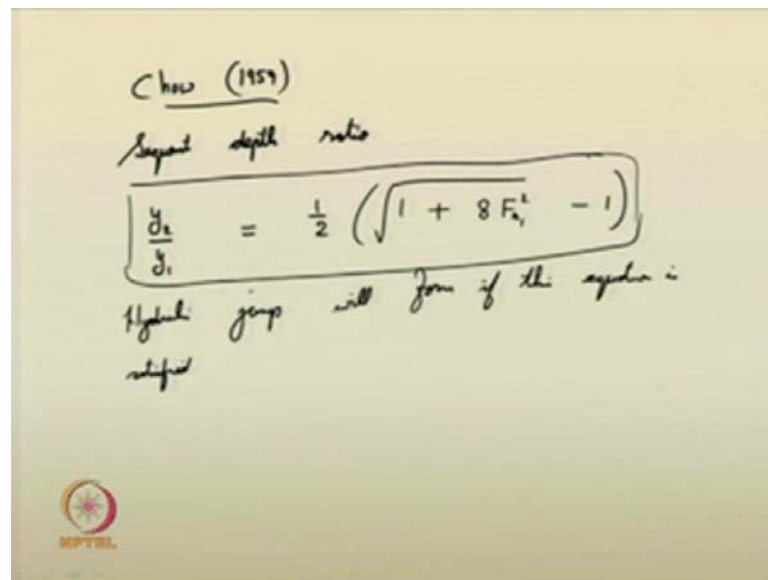 Chow (1959)
Sequent depth ratio
y₂/y₁ = 1/2 (√(1 + 8 F_r₁²) - 1)
Hydraulic jump will form if this equation is
satisfied
NPTEL